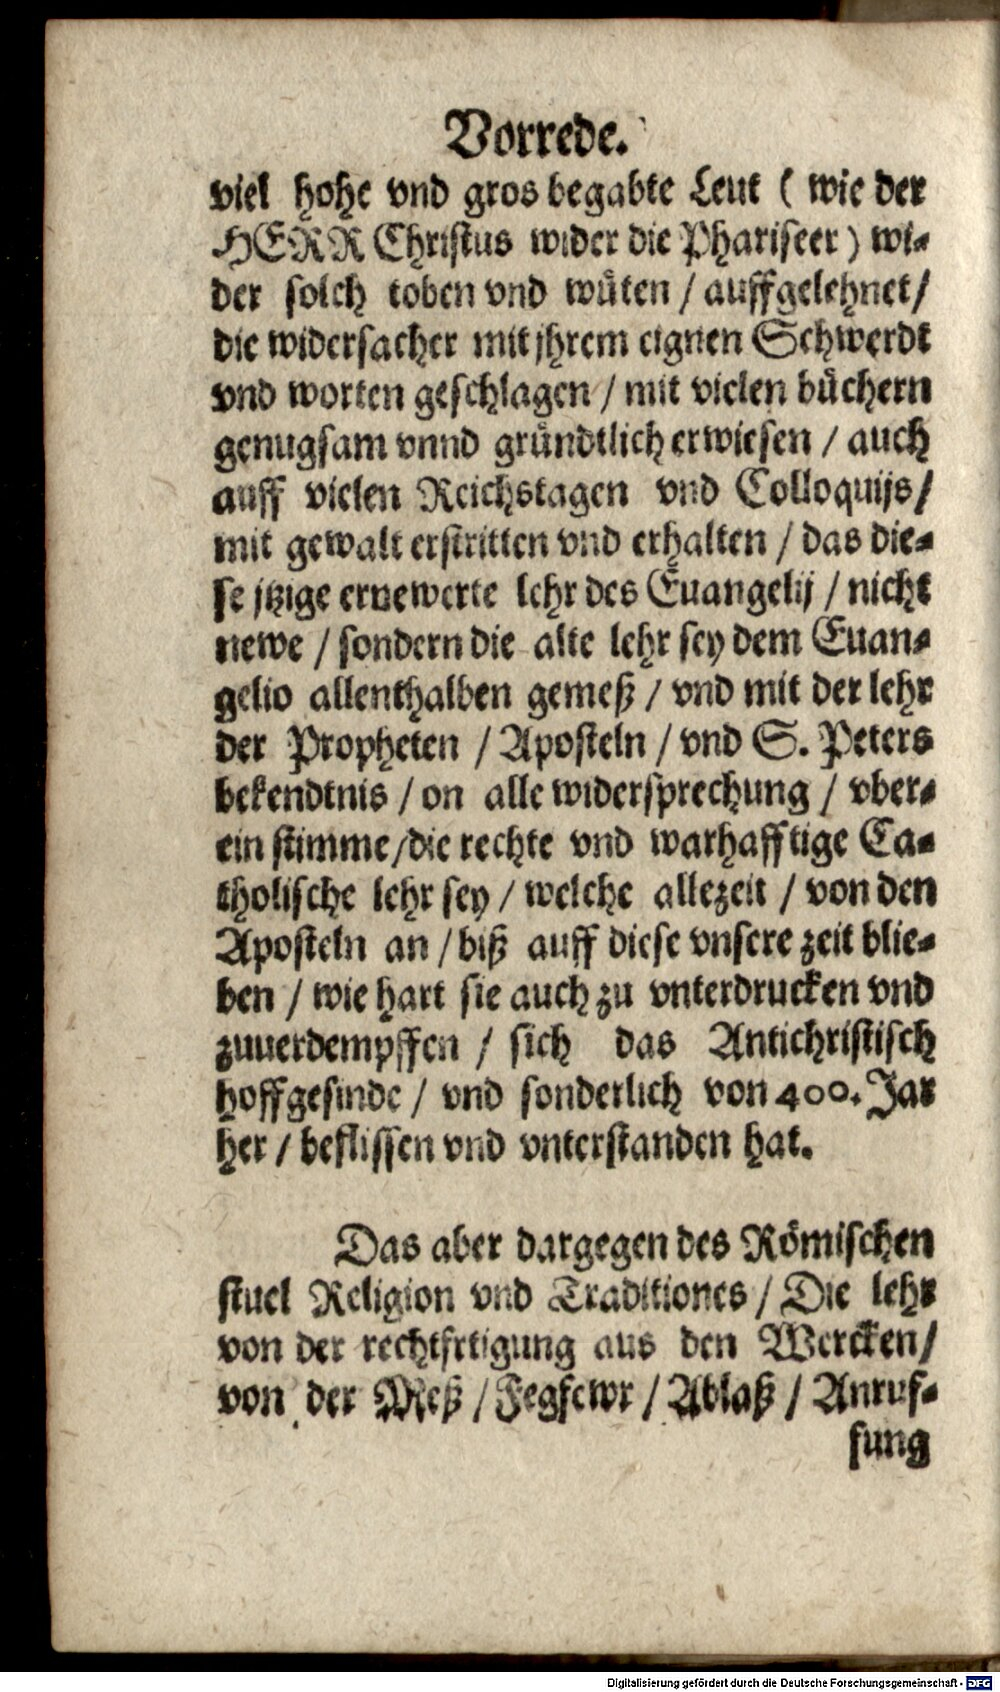 Vorrede.
viel hohe vnd gros begabte Leut ( wie der
HERR Christus wider die Phariseer ) wi-
der solch toben vnd wüten / auffgelehnet /
die widersacher mit jhrem eignen Schwerdt
vnd worten geschlagen / mit vielen büchern
genugsam vnnd gründtlich erwiesen / auch
auff vielen Reichstagen vnd Colloquijs /
mit gewalt erstritten vnd erhalten / das die-
se jtzige ernewerte lehr des Euangelij / nicht
newe / sondern die alte lehr sey dem Euan-
gelio allenthalben gemeß / vnd mit der lehr
der Propheten / Aposteln / vnd S. Peters
bekendtnis / on alle widersprechung / vber-
ein stimme / die rechte vnd warhafftige Ca-
tholische lehr sey / welche allezeit / von den
Aposteln an / biß auff diese vnsere zeit blie-
ben / wie hart sie auch zu vnterdrucken vnd
zuuerdempffen / sich das Antichristisch
hoffgesinde / vnd sonderlich von 400. Jar
her / beflissen vnd vnterstanden hat.
Das aber dargegen des Römischen
stuel Religion vnd Traditiones / Die lehr
von der rechtfrtigung aus den Wercken /
von der Meß / Fegfewr / Ablaß / Anruf-
fung
Digitalisierung gefördert durch die Deutsche Forschungsgemeinschaft - DFG